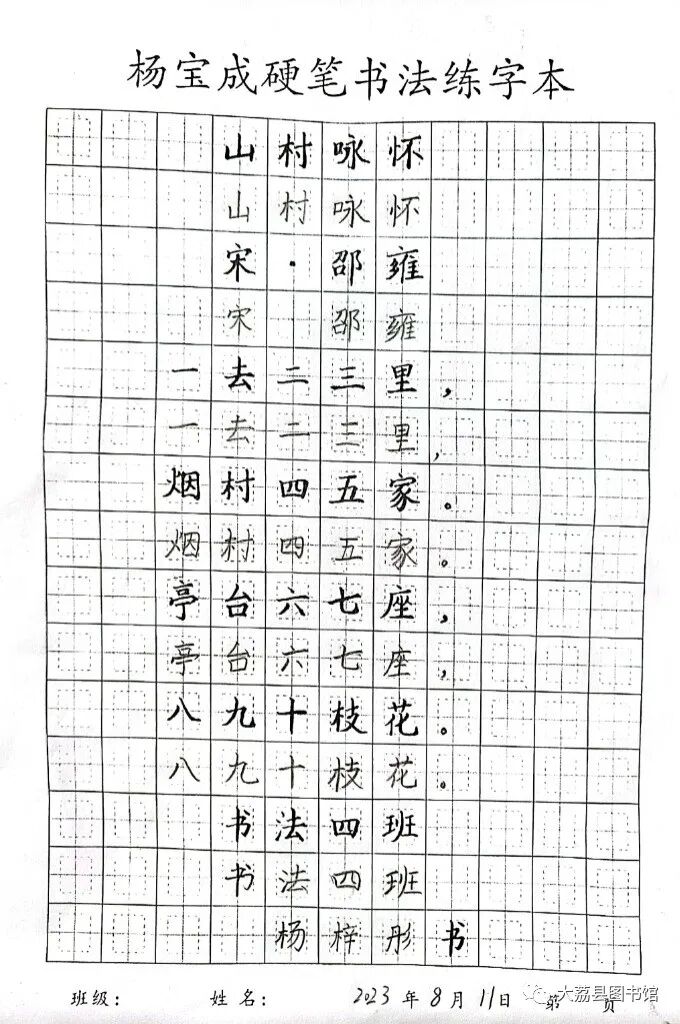 杨宝成硬笔书法练字本
山村咏怀
山村咏怀
宋·邵雍
宋 邵雍
一去二三里，
一去二三里，
烟村四五家。
烟村四五家。
亭台六七座，
亭台六七座，
八九十枝花。
八九十枝花。
书法四班
书法四班
杨梓彤书
班级： 姓名： 2023年8月11日 第 页
大荔县图书馆